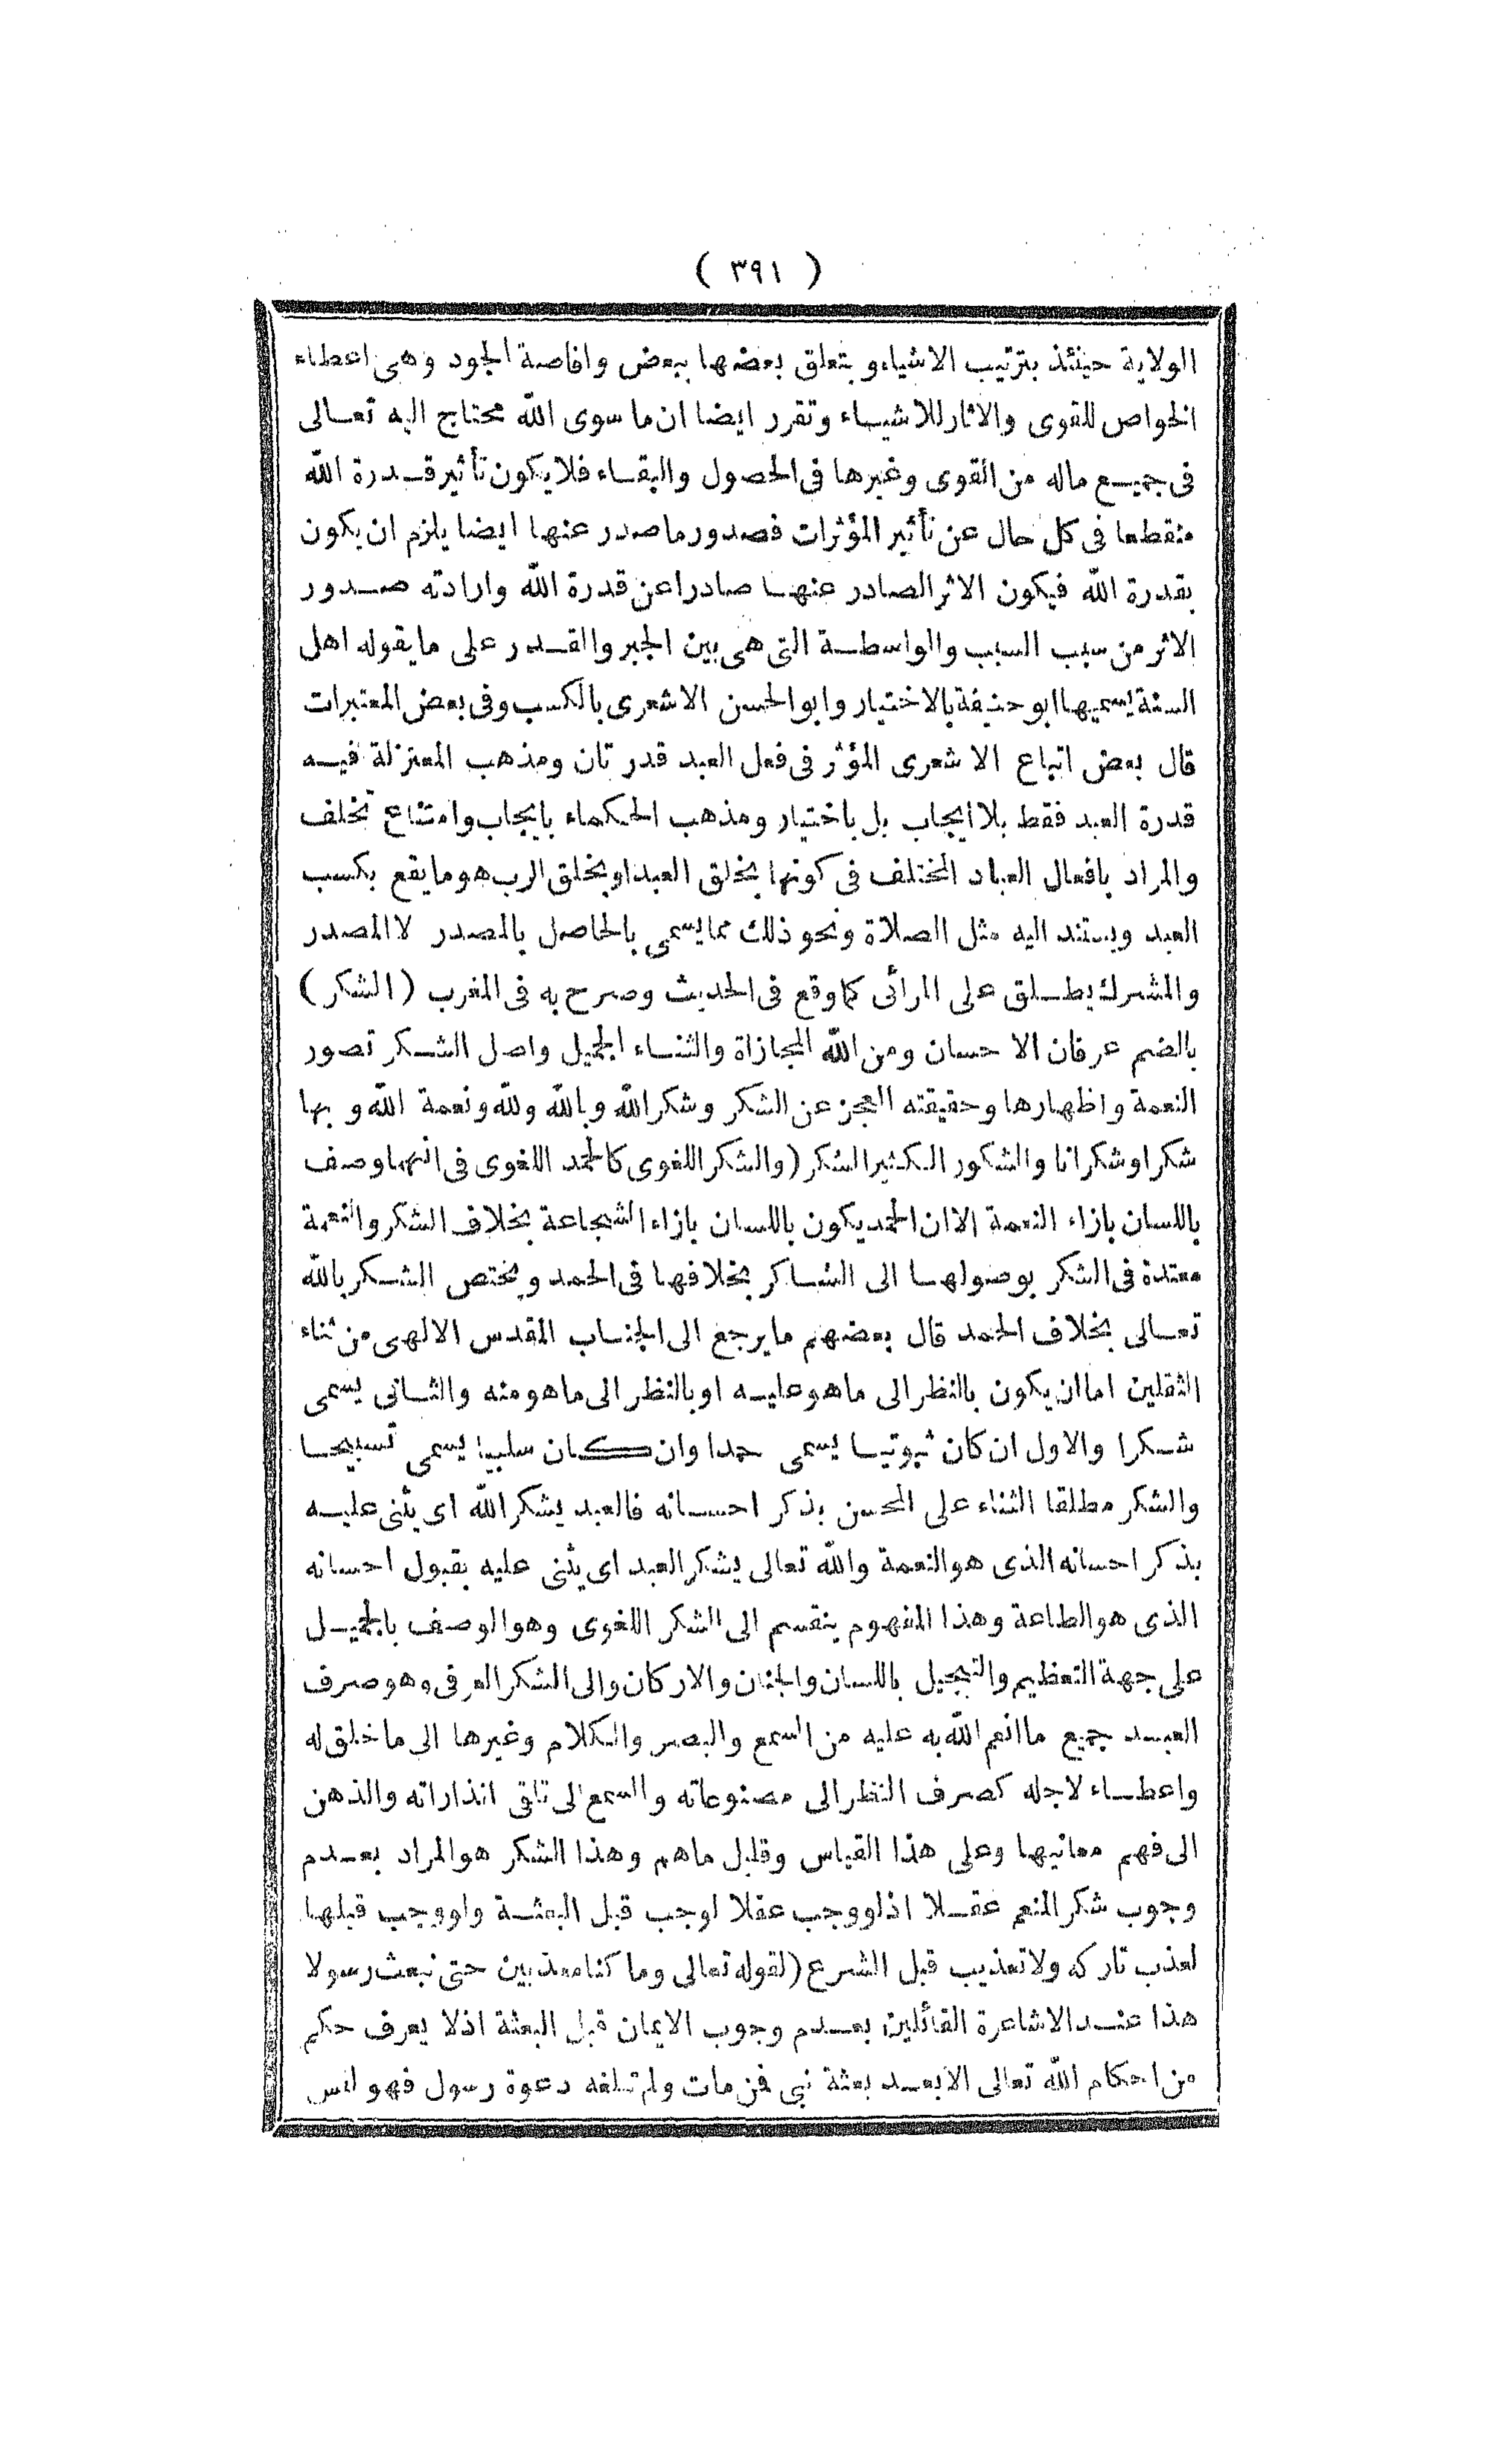 ( ٣٩١ )
الولاية حينئذ بترتيب الاشياء و بتعلق بعضها ببعض وافاضة الجود وهى اعطاء
الخواص للقوى والاثار للاشياء وتقرر ايضا ان ما سوى الله محتاج اليه تعالى
فى جميع ماله من القوى وغيرها فى الحصول والبقاء فلا يكون تأثير قدرة الله
منقطعا فى كل حال عن تأثير المؤثرات فصدور ما صدر عنها ايضا يلزم ان يكون
بقدرة الله فيكون الاثر الصادر عنها صادرا عن قدرة الله وارادته صدور
الاثر من سبب السبب والواسطة التى هى بين الجبر والقدر على ما يقوله اهل
السنة يسميها ابو حنيفة بالاختيار وابو الحسن الاشعرى بالكسب وفى بعض المعتبرات
قال بعض اتباع الاشعرى المؤثر فى فعل العبد قدرتان ومذهب المعتزلة فيه
قدرة العبد فقط بلا ايجاب بل باختيار ومذهب الحكماء بايجاب وامتناع تخلف
والمراد بافعال العباد المختلف فى كونها بخلق العبد او بخلق الرب هو ما يقع بكسب
العبد ويستند اليه مثل الصلاة ونحو ذلك مما يسمى بالحاصل بالمصدر لا المصدر
والمشرك يطلق على المرائى كما وقع فى الحديث وصرح به فى المغرب (الشكر)
بالضم عرفان الاحسان ومن الله المجازاة والثناء الجميل واصل الشكر تصور
النعمة واظهارها وحقيقته العجز عن الشكر وشكر الله وبالله ولله ونعمة الله و بها
شكرا وشكرانا والشكور الكثير الشكر (والشكر اللغوى كالحمد اللغوى فى انهما وصف
باللسان بازاء النعمة الا ان الحمد يكون باللسان بازاء الشجاعة بخلاف الشكر والنعمة
معتدة فى الشكر بوصولها الى الشاكر بخلافها فى الحمد ويختص الشكر بالله
تعالى بخلاف الحمد قال بعضهم ما يرجع الى الجناب المقدس الالهى من ثناء
الثقلين اما ان يكون بالنظر الى ما هو عليه او بالنظر الى ما هو منه والثانى يسمى
شكرا والاول ان كان ثبوتيا يسمى حمدا وان كان سلبيا يسمى تسبيحا
والشكر مطلقا الثناء على المحسن بذكر احسانه فالعبد يشكر الله اى يثنى عليه
بذكر احسانه الذى هو النعمة والله تعالى يشكر العبد اى يثنى عليه بقبول احسانه
الذى هو الطاعة وهذا المفهوم ينقسم الى الشكر اللغوى وهو الوصف بالجميل
على جهة التعظيم والتبجيل باللسان والجنان والاركان والى الشكر العرفى وهو صرف
العبد جميع ما انعم الله به عليه من السمع والبصر والكلام وغيرها الى ما خلق له
واعطاء لاجله كصرف النظر الى مصنوعاته والسمع الى تلقى انذاراته والذهن
الى فهم معانيها وعلى هذا القياس وقليل ماهم وهذا الشكر هو المراد بعدم
وجوب شكر المنعم عقلا اذ لو وجب عقلا لوجب قبل البعثة ولو وجب قبلها
لعذب تاركه ولا تعذيب قبل الشرع (لقوله تعالى وما كنا معذبين حتى نبعث رسولا
هذا عند الاشاعرة القائلين بعدم وجوب الايمان قبل البعثة اذ لا يعرف حكم
من احكام الله تعالى الا بعد بعثة نبى فمن مات ولم تبلغه دعوة رسول فهو ليس